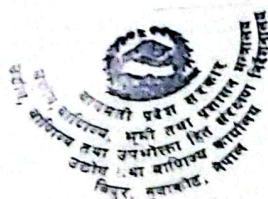 बागमती प्रदेश सरकार
उद्योग, वाणिज्य, भूमी तथा प्रशासन मन्त्रालय
उद्योग, वाणिज्य तथा उपभोक्ता हित संरक्षण निर्देशनालय
उद्योग तथा वाणिज्य कार्यालय
बिदुर, नुवाकोट, नेपाल